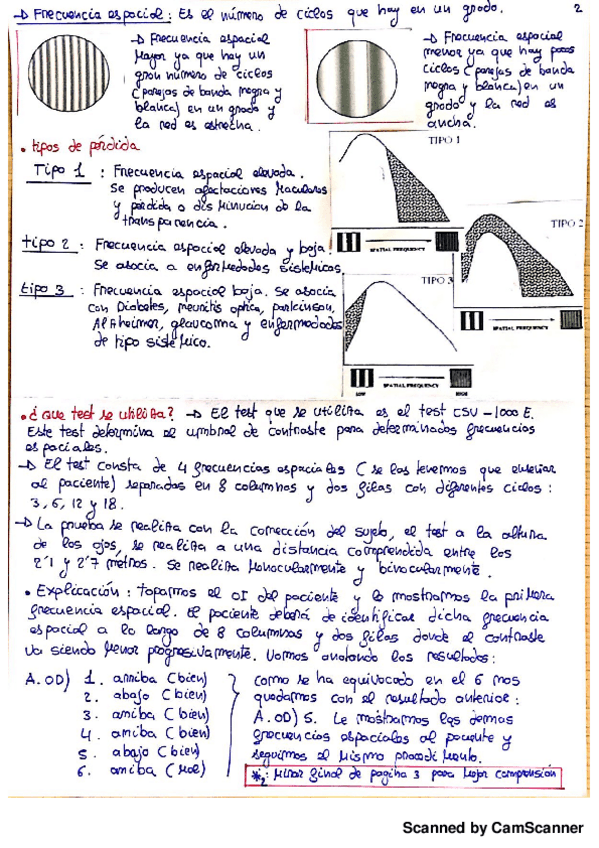 → Frecuencia espacial: Es el número de ciclos que hay en un grado.
2
→ Frecuencia espacial
Mayor ya que hay un
gran número de ciclos
(parejas de banda negra y
blanca) en un grado y
la red es estrecha.
→ Frecuencia espacial
menor ya que hay pocos
ciclos (parejas de banda
negra y blanca) en un
grado y la red es
ancha.
• tipos de pérdida
Tipo 1 : Frecuencia espacial elevada.
Se producen afectaciones Maculares
y pérdida o disminucion de la
transparencia.
tipo 2 : Frecuencia espacial elevada y baja.
Se asocia a enfermedades sistémicas.
tipo 3 : Frecuencia espacial baja. Se asocia
con Diabetes, neuritis optica, parkinson,
Alzheimer, glaucoma y enfermedades
de tipo sistémico.
TIPO 1
SPATIAL FREQUENCY
TIPO 2
SPATIAL FREQUENCY
TIPO 3
SPATIAL FREQUENCY
LOW
HIGH
• ¿que test se utiliza? → El test que se utiliza es el test CSV-1000 E.
Este test determina el umbral de contraste para determinadas frecuencias
espaciales.
→ El test consta de 4 frecuencias espaciales (se las tenemos que enseñar
al paciente) separadas en 8 columnas y dos filas con diferentes ciclos:
3, 6, 12 y 18.
→ La prueba se realiza con la corrección del sujeto, el test a la altura
de los ojos, se realiza a una distancia comprendida entre los
2'1 y 2'7 metros. Se realiza Monocularmente y binocularmente.
• Explicación: tapamos el OI del paciente y le mostramos la primera
frecuencia espacial. El paciente deberá de identificar dicha frecuencia
espacial a lo largo de 8 columnas y dos filas donde el contraste
va siendo Menor progresivamente. Vamos anotando los resultados:
A. OD) 1. arriba (bien)
2. abajo (bien)
3. arriba (bien)
4. arriba (bien)
5. abajo (bien)
6. arriba (Mal)
Como se ha equivocado en el 6 nos
quedamos con el resultado anterior:
A. OD) 5. Le mostramos las demas
frecuencias espaciales al paciente y
seguimos el Mismo procedimiento.
*2: Mirar final de pagina 3 para Mejor comprensión
Scanned by CamScanner